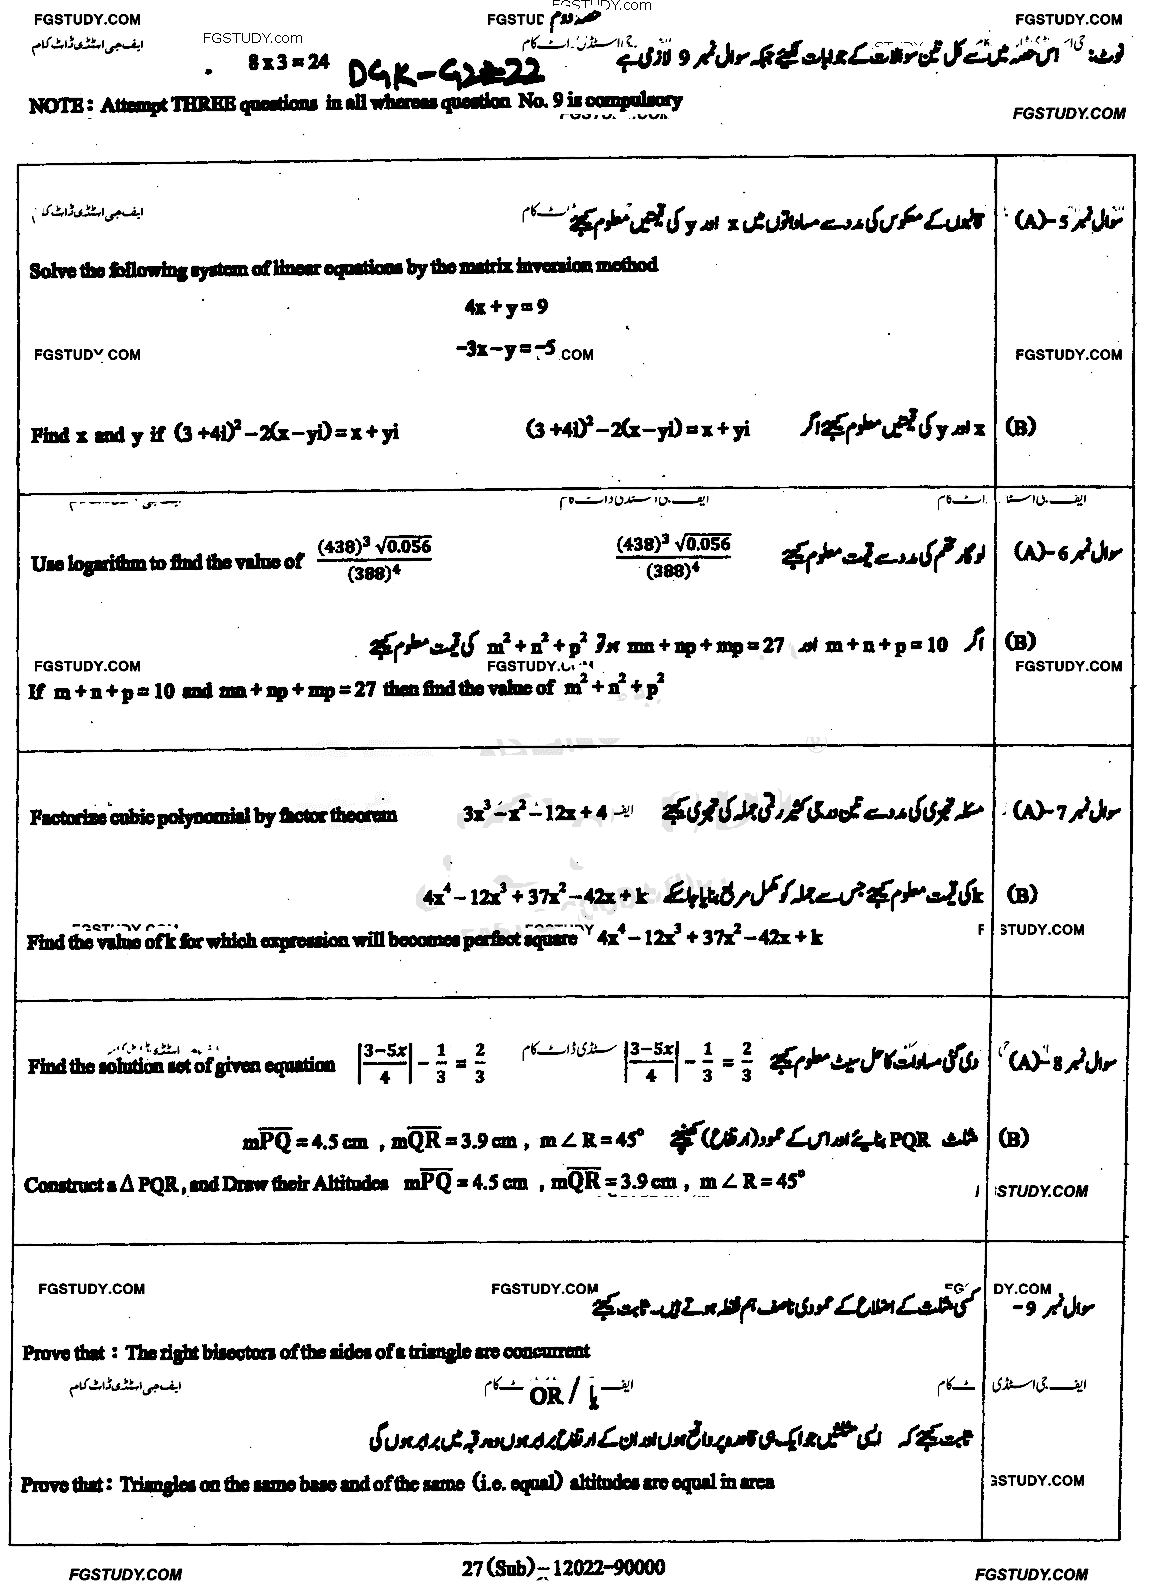 FGSTUDY.COM FGSTUD حصہ دوم FGSTUDY.com FGSTUDY.COM
ایف جی اسٹڈی ڈاٹ کام FGSTUDY.com نوٹ: اس حصہ میں سے کل تین سوالات کے جوابات لکھیئے جبکہ سوال نمبر 9 لازمی ہے
8 x 3 = 24 DGK-G2-22
NOTE : Attempt THREE questions in all whereas question No. 9 is compulsory FGSTUDY.COM
ایف جی اسٹڈی ڈاٹ کام
سوال نمبر 5-(A) قالبوں کے معکوس کی مدد سے مساواتوں میں x اور y کی قیمتیں معلوم کیجئے
Solve the following system of linear equations by the matrix inversion method
4x + y = 9
-3x - y = -5
FGSTUDY.COM .COM FGSTUDY.COM
Find x and y if (3 +4i)² - 2(x - yi) = x + yi
(B) x اور y کی قیمتیں معلوم کیجئے اگر (3 +4i)² - 2(x - yi) = x + yi
سوال نمبر 6-(A) لوگارتھم کی مدد سے قیمت معلوم کیجئے (438)³ √0.056 / (388)⁴
Use logarithm to find the value of (438)³ √0.056 / (388)⁴
(B) اگر m + n + p = 10 اور mn + np + mp = 27 ہو تو m² + n² + p² کی قیمت معلوم کیجئے
FGSTUDY.COM FGSTUDY.COM FGSTUDY.COM
If m + n + p = 10 and mn + np + mp = 27 then find the value of m² + n² + p²
سوال نمبر 7-(A) مسئلہ تجزی کی مدد سے تین درجی کثیر رقمی جملہ کی تجزی کیجئے 3x³ - x² - 12x + 4
Factorize cubic polynomial by factor theorem
(B) k کی قیمت معلوم کیجئے جس سے جملہ کو مکمل مربع بنایا جا سکے 4x⁴ - 12x³ + 37x² - 42x + k
Find the value of k for which expression will becomes perfect square 4x⁴ - 12x³ + 37x² - 42x + k
STUDY.COM
سوال نمبر 8-(A) دی گئی مساوات کا حل سیٹ معلوم کیجئے |3-5x / 4| - 1/3 = 2/3
Find the solution set of given equation |3-5x / 4| - 1/3 = 2/3
(B) مثلث PQR بنایئے اور اس کے عمود (ارتفاع) کھینچیے mPQ = 4.5 cm , mQR = 3.9 cm , m ∠ R = 45°
Construct a Δ PQR, and Draw their Altitudes mPQ = 4.5 cm , mQR = 3.9 cm , m ∠ R = 45°
STUDY.COM
FGSTUDY.COM FGSTUDY.COM DY.COM
سوال نمبر 9- کسی مثلث کے اضلاع کے عمودی ناصف ہم نقطہ ہوتے ہیں۔ ثابت کیجئے
Prove that : The right bisectors of the sides of a triangle are concurrent
ایف جی اسٹڈی ڈاٹ کام
OR / یا
ثابت کیجئے کہ ایسی مثلثیں جو ایک ہی قاعدہ پر واقع ہوں اور ان کے ارتفاع برابر ہوں وہ رقبہ میں برابر ہوں گی
Prove that : Triangles on the same base and of the same (i.e. equal) altitudes are equal in area
GSTUDY.COM
27 (Sub) - 12022-90000
FGSTUDY.COM FGSTUDY.COM